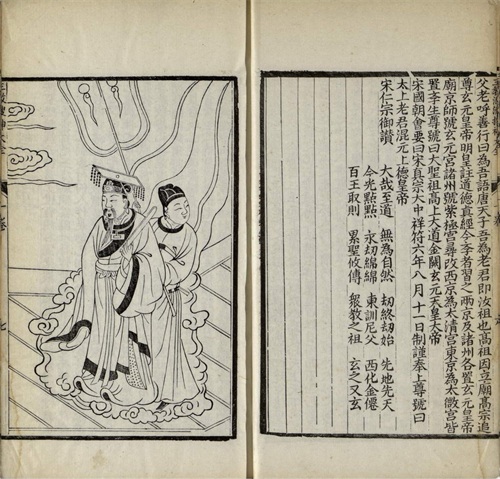 父老呼善行曰為吾語唐天子吾為老君即汝祖也高祖因立廟高宗追
尊玄元皇帝明皇註道德真經令孝者習之兩京及諸州各置玄元皇帝
廟京師號玄元宮諸州號紫極宮尋改西京為太清宮東京為太微宮皆
置孝生尊號曰大聖祖高上大道金闕玄元天皇大帝
宋國朝會要曰宋真宗大中祥符六年八月十一日制謹奉上尊號曰
太上老君混元上德皇帝
宋仁宗御讚 大哉至道 無為自然 劫終劫始 先地先天
含光默默 永劫綿綿 東訓尼父 西化金僊
百王取則 累聖攸傳 衆教之祖 玄之又玄